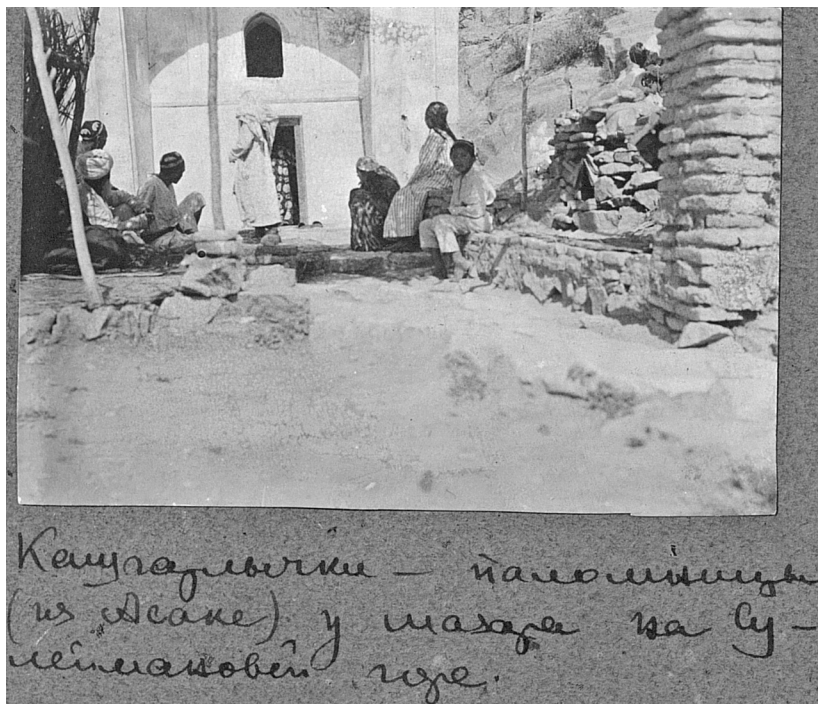 Кашгарлычки – паломницы
(из Асаке) у мазара на Су-
леймановой горе.